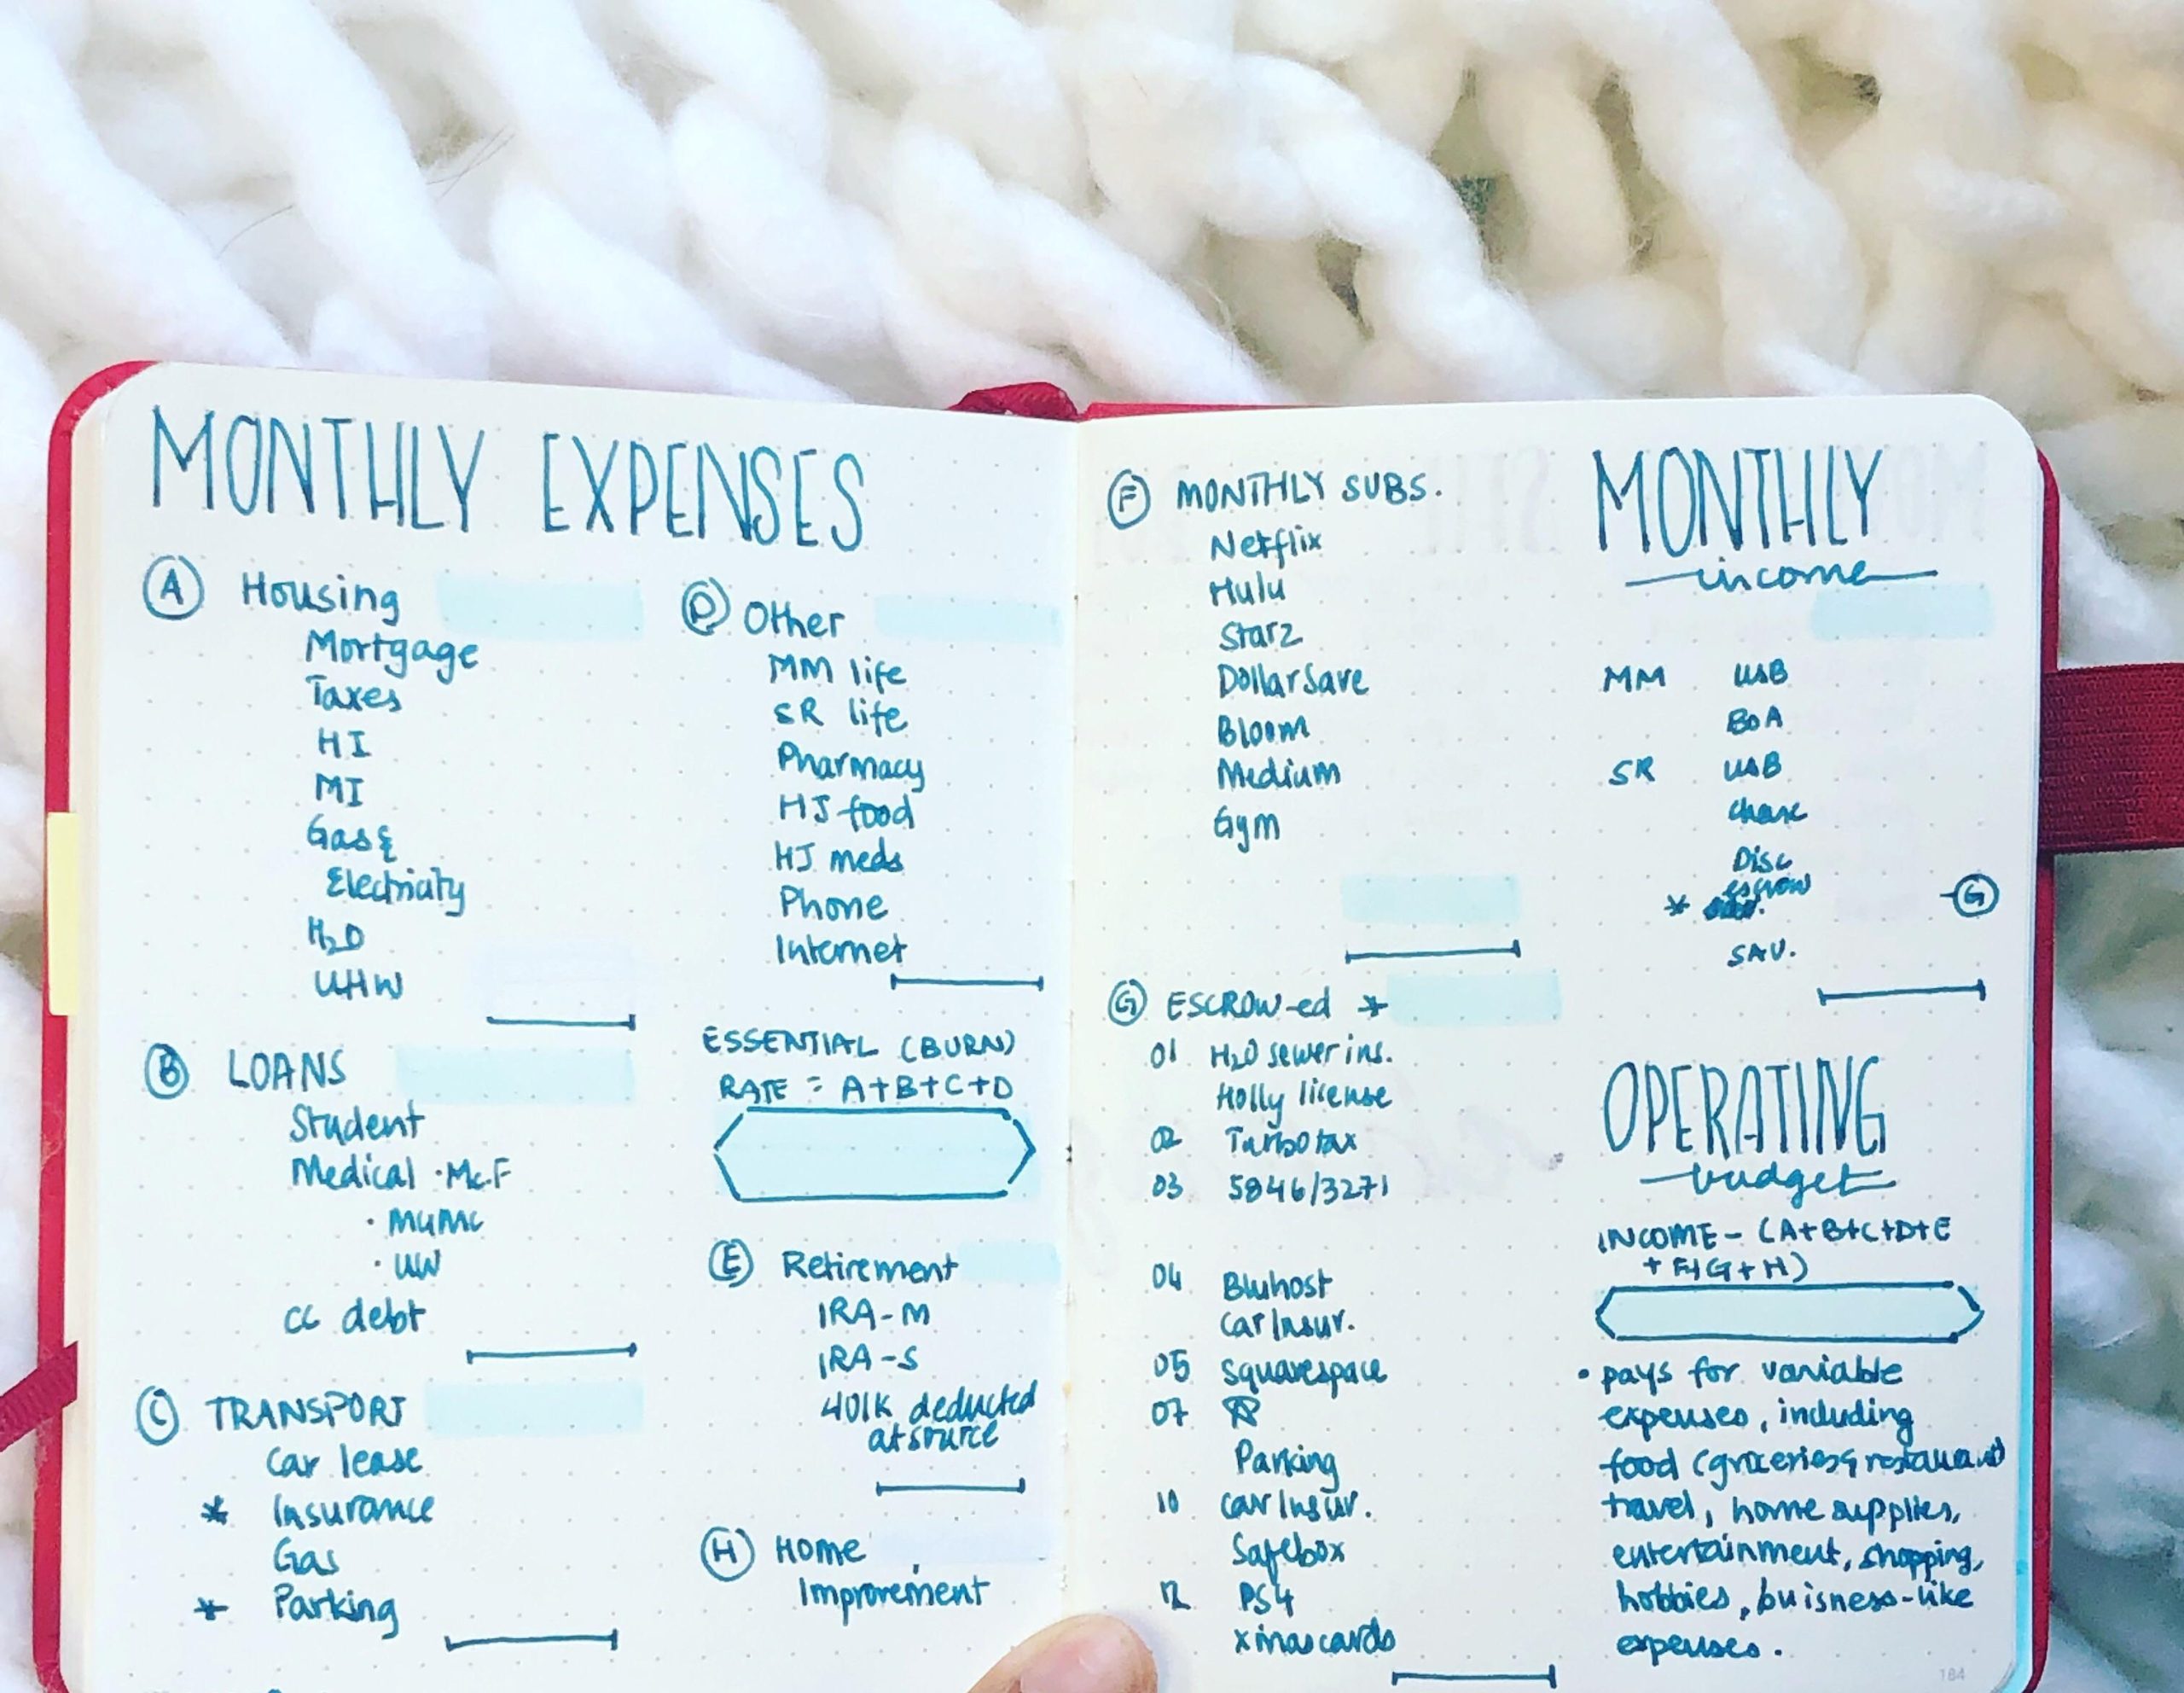 MONTHLY EXPENSES
A Housing
Mortgage
Taxes
HI
MI
Gas &
Electricity
H2O
UHW
B LOANS
Student
Medical · McF
· MUMC
· UW
CC debt
C TRANSPORT
Car lease
* Insurance
Gas
* Parking
D Other
MM life
SR life
Pharmacy
HJ food
HJ meds
Phone
Internet
ESSENTIAL (BURN)
RATE = A+B+C+D
E Retirement
IRA-M
IRA-S
401K deducted
at source
H Home
Improvement
F MONTHLY SUBS.
Netflix
Hulu
Starz
DollarSave
Bloom
Medium
Gym
G ESCROW-ed *
01 H2O sewer ins.
Holly license
02 Turbotax
03 5846/3271
04 Bluhost
Car Insur.
05 Squarespace
07
Parking
10 Car Insur.
Safebox
12 PS4
xmas cards
MONTHLY
income
MM USB
BoA
SR USB
Chase
Disc
* escrow -G
SAV.
OPERATING
budget
INCOME - (A+B+C+D+E
+F+G+H)
• pays for variable
expenses, including
food (groceries & restaurant)
travel, home supplies,
entertainment, shopping,
hobbies, buisness-like
expenses.
184